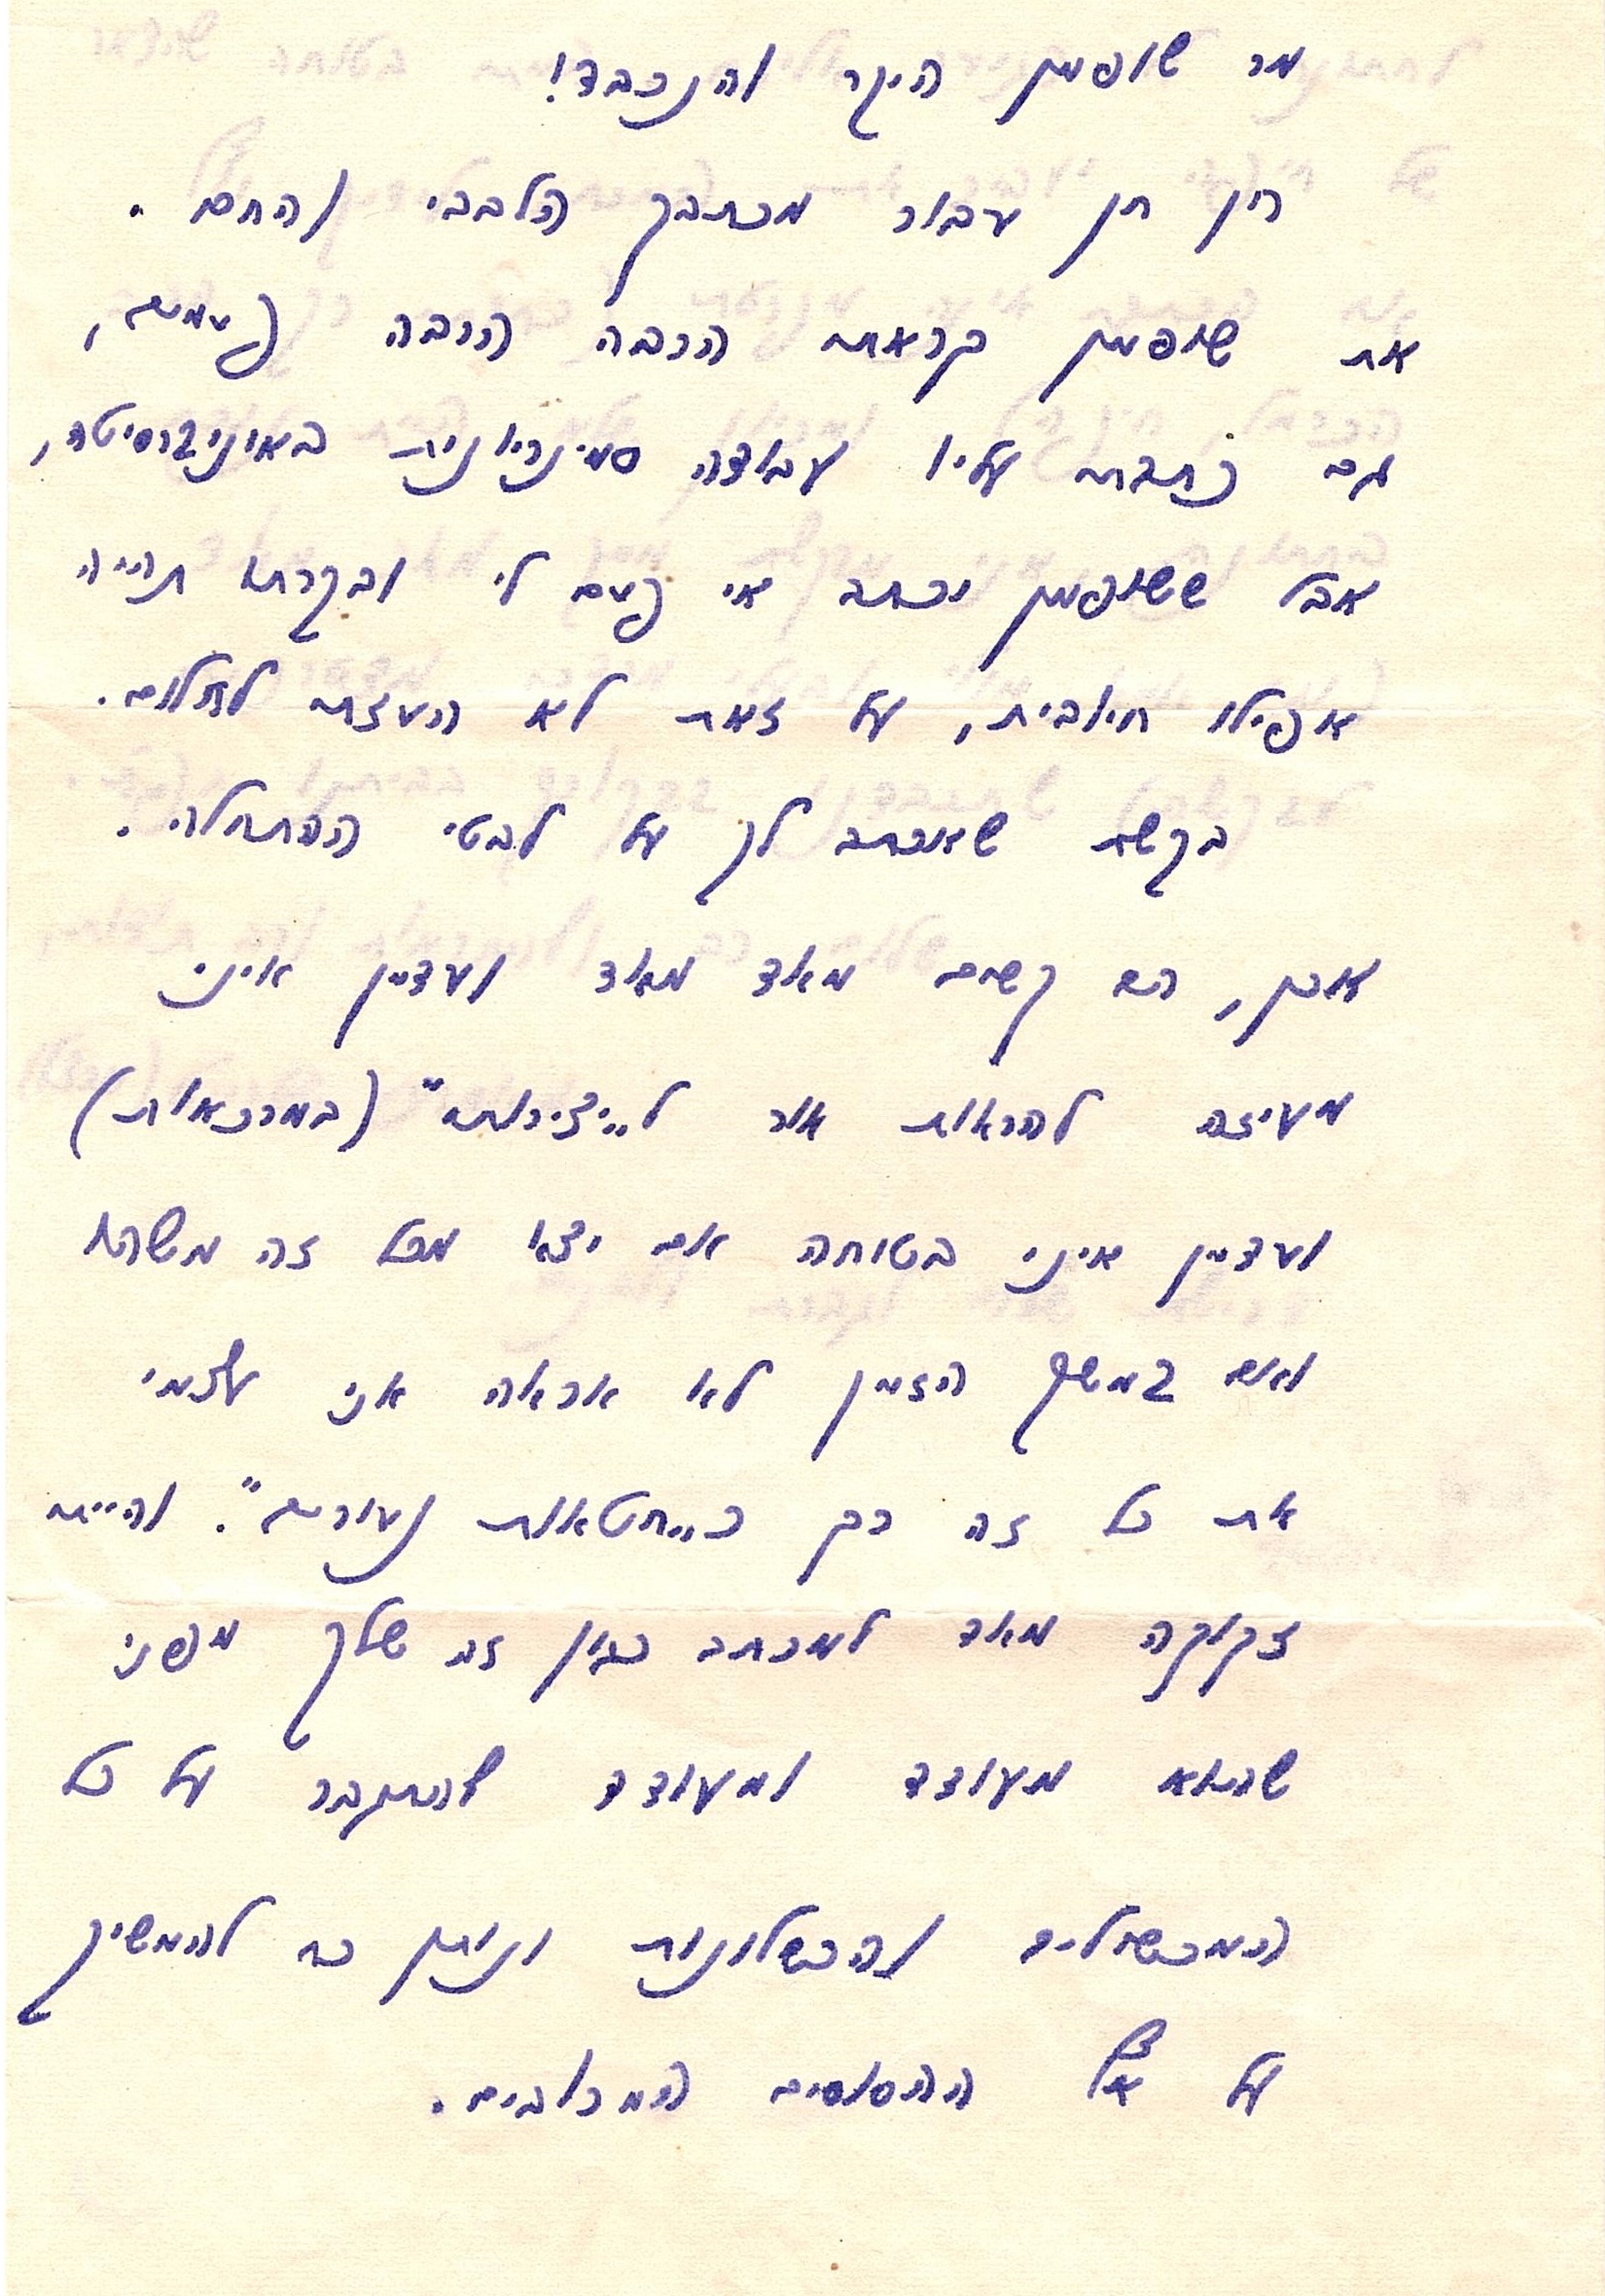 מר שופמן היקר והנכבד!
רוב תודה עבור מכתבך הלבבי והחם.
את שופמן קראתי הרבה הרבה פעמים,
גם כתבתי עליו עבודה סמינריונית באוניברסיטה,
אבל ששופמן יכתוב אי פעם לי ובקרתו תהייה
אפילו חיובית, על זאת לא העזתי לחלום.
בקשת שאכתוב לך על לבטי ההתחלה.
אכן, הם קשים מאד מאד ועדיין איני
מעיזה להראות אור ל"יצירותי" (במרכאות)
ועדיין איני בטוחה אם יצא מכל זה משהו
ואם במשך הזמן לא אראה אני עצמי
את כל זה רק כ"חטאות נעורים". והייתי
זקוקה מאד למכתב כגון זה שלך מפני
שהוא מעודד ומעודד להתגבר על כל
המכשולים והכשלונות ונותן כח להמשיך
על אף ההסוסים המרובים.